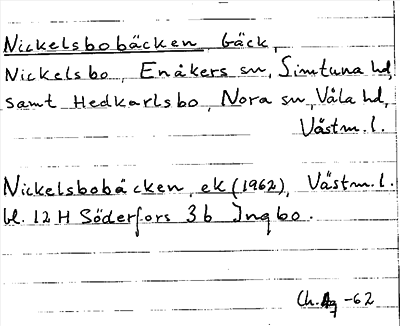 Nickelsbobäcken, bäck,
Nickelsbo, Enåkers sn, Simtuna hd,
samt Hedkarlsbo, Nora sn, Våla hd,
Västm. l.
Nickelsbobäcken, ek (1962), Västm. l.
bl. 12 H Söderfors 3b Ingbo.
Ch. -62